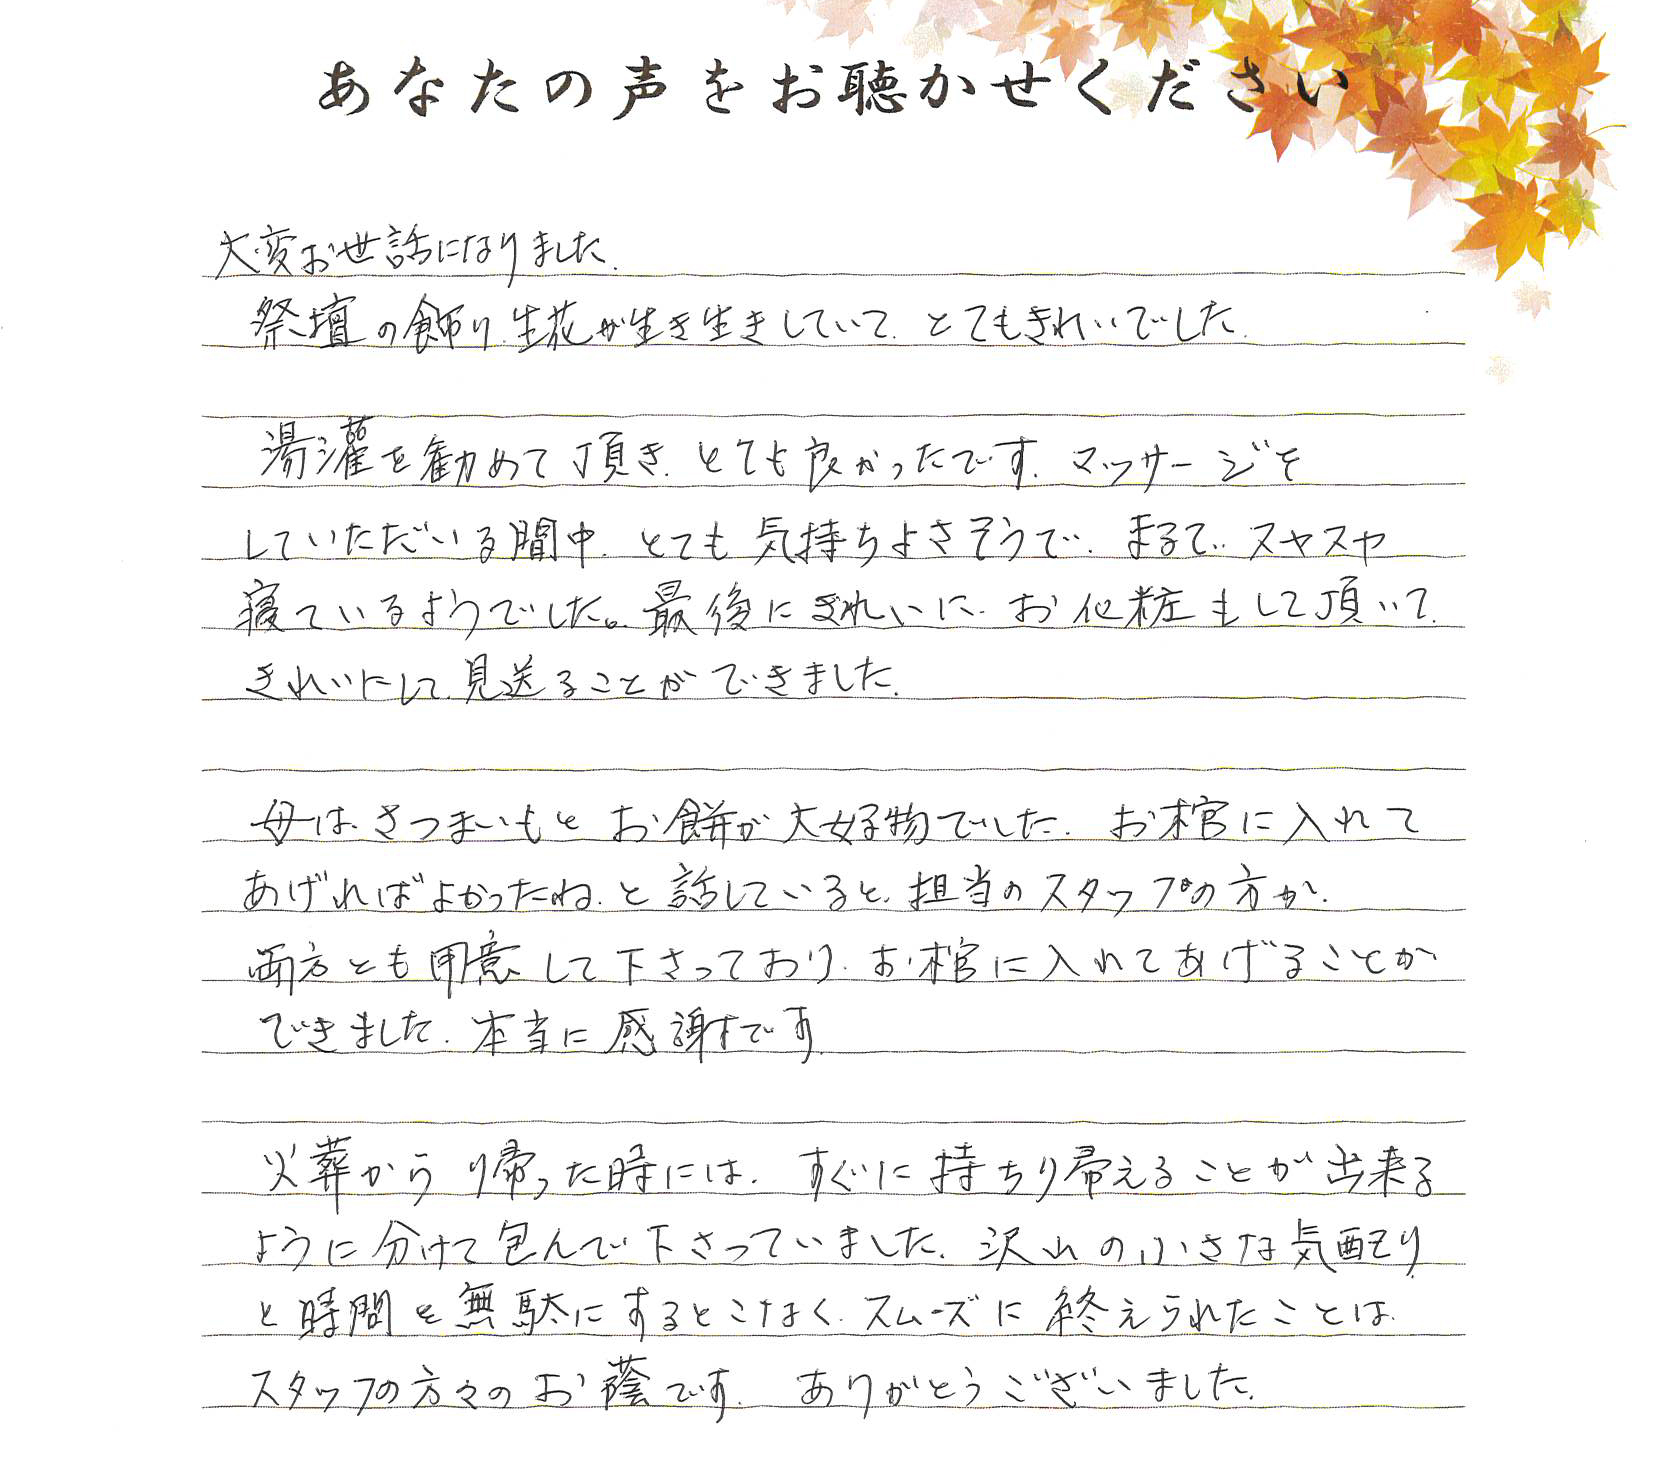 あなたの声をお聴かせください
大変お世話になりました.
祭壇の飾り.生花が生き生きしていて.とてもきれいでした.
湯灌を勧めて頂き.とても良かったです.マッサージを
していただいる間中.とても気持ちよさそうで.まるで.スヤスヤ
寝ているようでした。最後にきれいに.お化粧もして頂いて.
きれいにして.見送ることができました.
母は.さつまいもとお餅が大好物でした.お棺に入れて
あげればよかったね.と話していると.担当のスタッフの方が.
両方とも用意して下さっており.お棺に入れてあげることが
できました.本当に感謝です.
火葬から帰った時には.すぐに持ち帰えることが出来る
ように分けて包んで下さっていました.沢山の小さな気配り
と時間を無駄にするとこなく.スムーズに終えられたことは.
スタッフの方々のお蔭です.ありがとうございました.